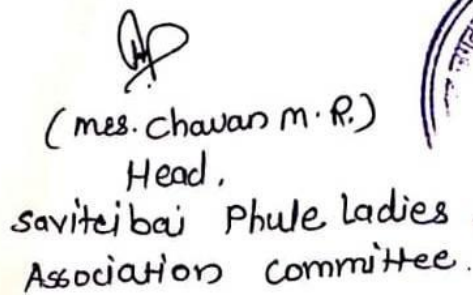 (mes. Chavan M. R.)
Head,
Savitribai Phule Ladies
Association Committee.